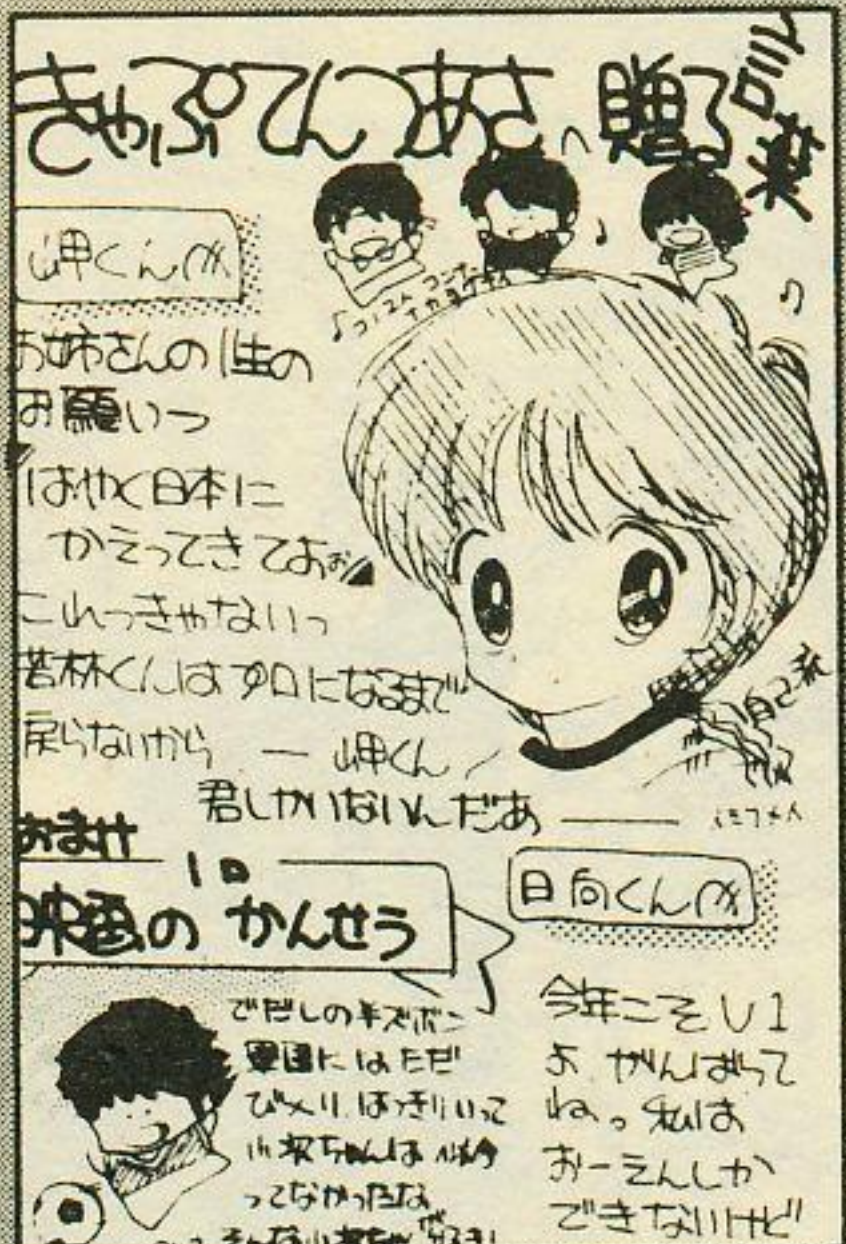 きゃぷてんつあさへ贈る言葉
岬くんへ
お姉さんの1生の
お願いっ
はやく日本に
かえってきておぉ
これっきゃないっ
若林くんはプロになるまで
戻らないから — 岬くん
君しかいないんだあ
自己流
おまけ
映画の かんせう
でだしの半ズボン
軍団にはただ
びっくり はっきりいって
小次ちゃんは
ってなかったな
日向くんへ
今年こそV1
よ がんばって
ねっ 私は
おーえんしか
できないけど